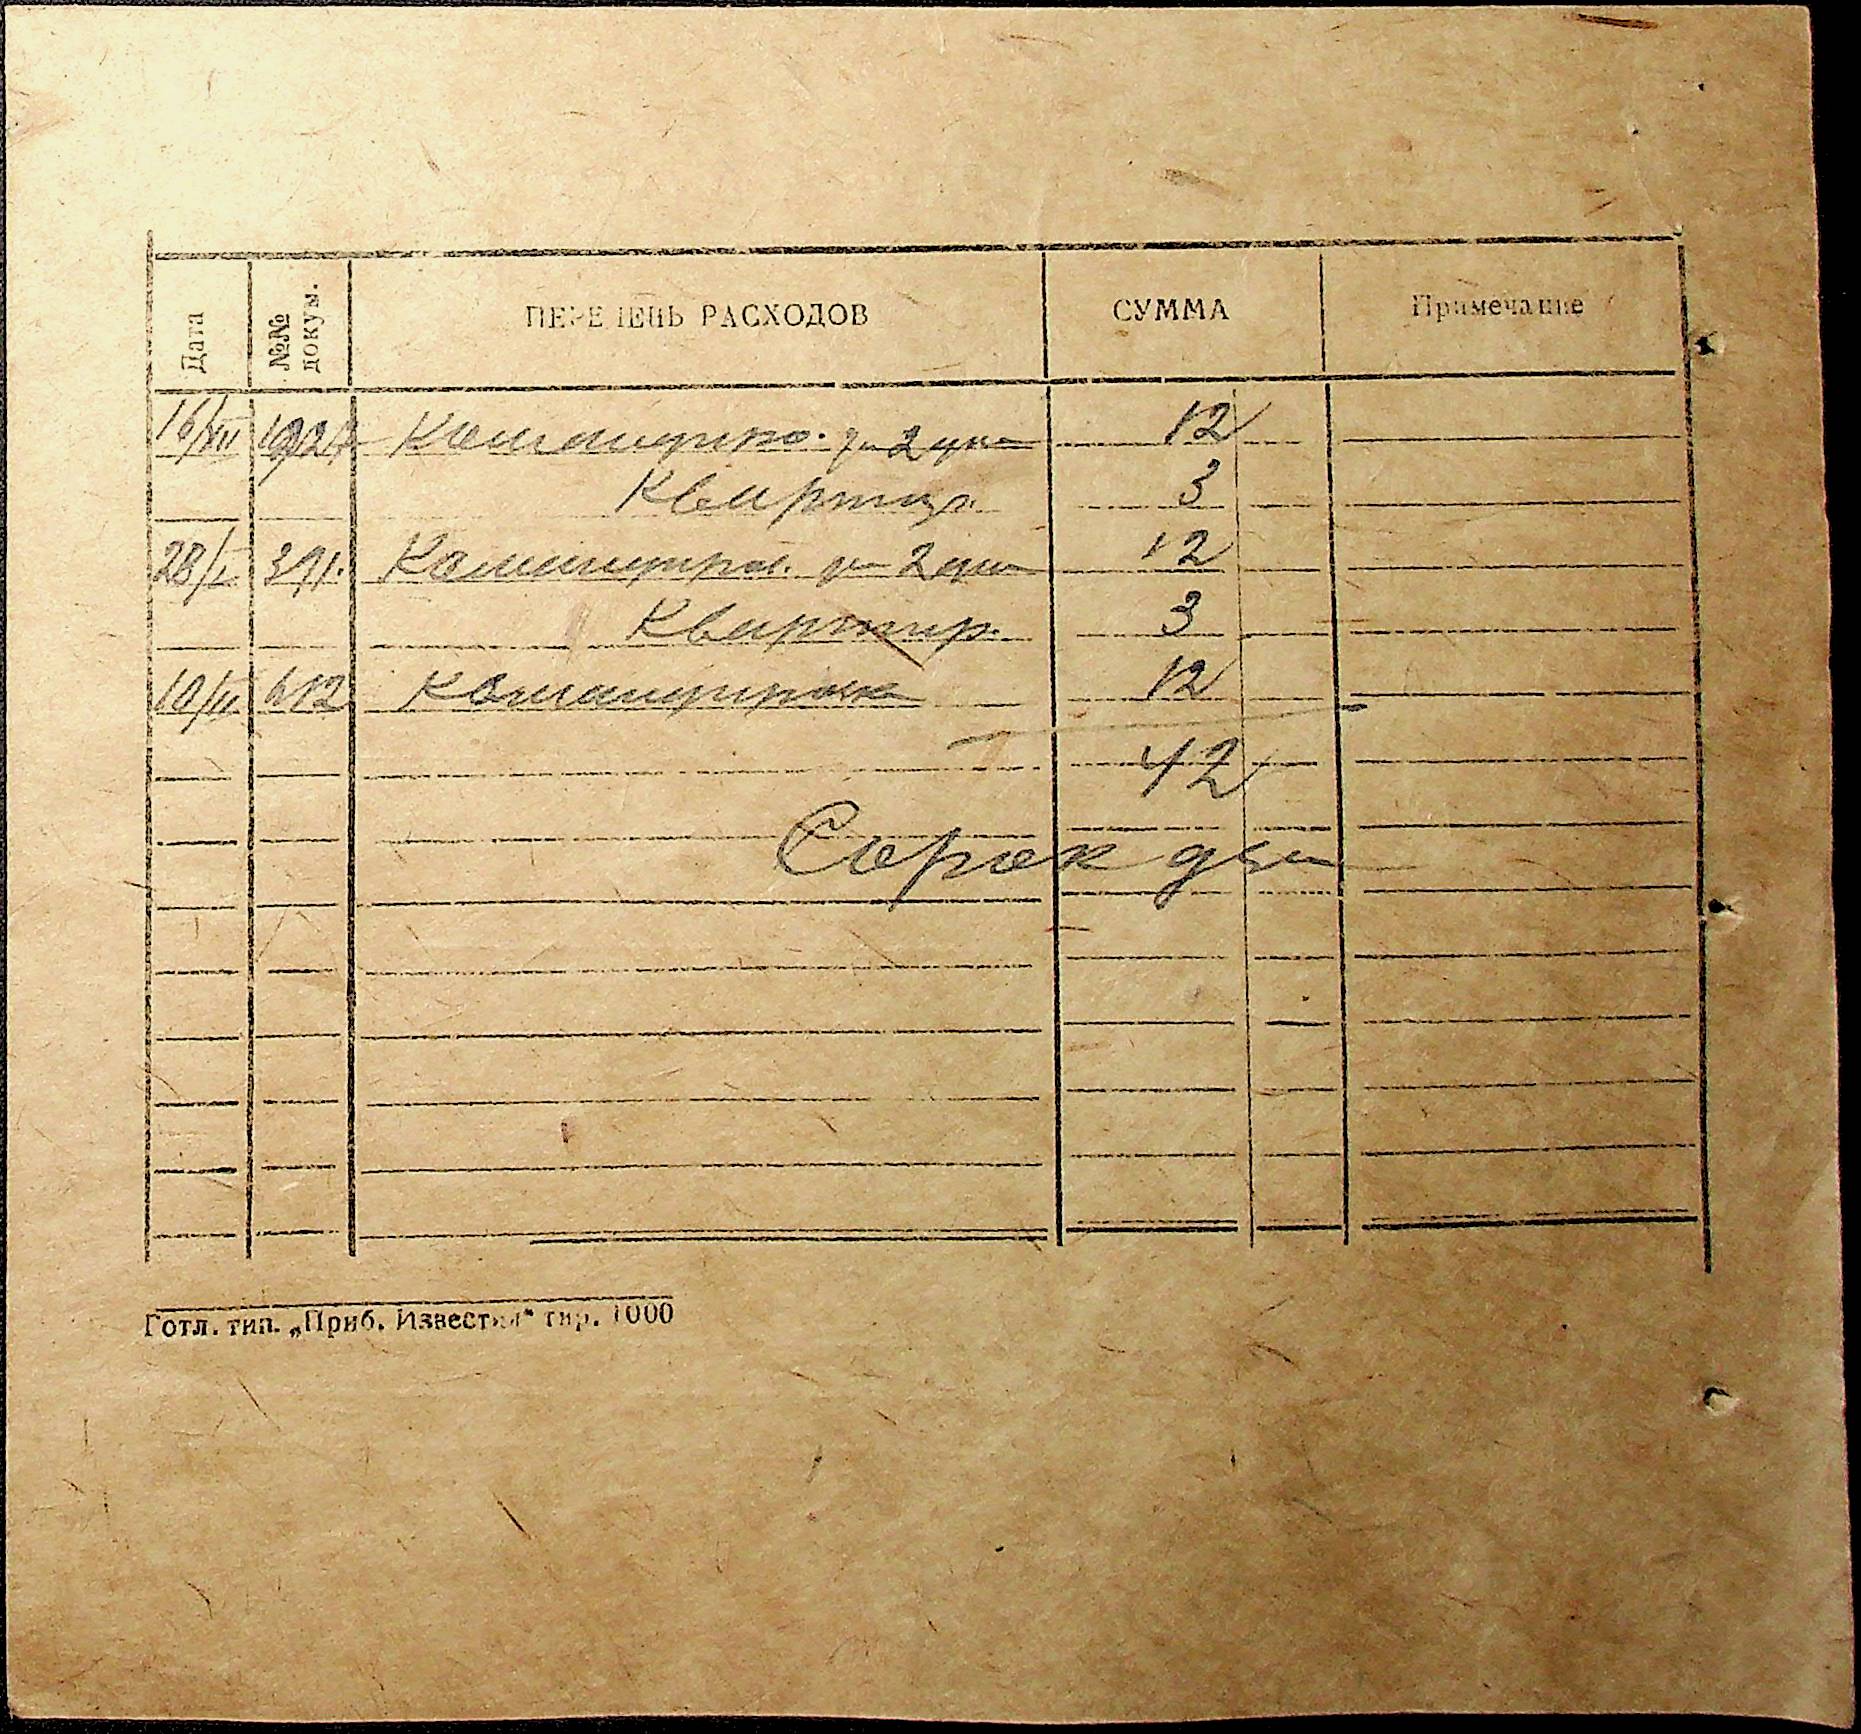 Дата №№ докум. ПЕРЕЧЕНЬ РАСХОДОВ СУММА Примечание
16/XII 1924 Командиро. за 2 дня 12
Квартир. 3
28/I 391. Командиров. за 2 дня 12
Квартир. 3
10/II 612 Командировка 12
42
Сорок два
Готл. тип. „Приб. Известия" тир. 1000